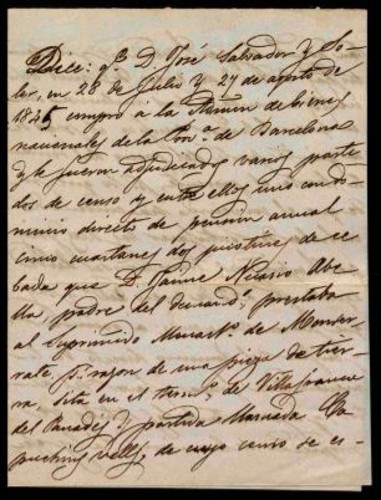 Dice: q.e D. José Salvador y So-
ler, en 28 de Julio y 27 de agosto de
1845 compró á la Admon de bienes
nacionales de la Prov.a de Barcelona
y le fueron adjudicados varias parti-
das de censo y entre ellas uno con do-
minio directo de pension anual
cinco cuartanes dos picotines de ce-
bada que D. Jaime Nicasio Abe-
lla, padre del demand.e, prestaba
al suprimido Monast.o de Monser-
rate, p.r razon de una pieza de tier-
ra, sita en el term.o de Villafranca
del Panadés y partida llamada Ca-
puchins vells, de cuyo censo se es-